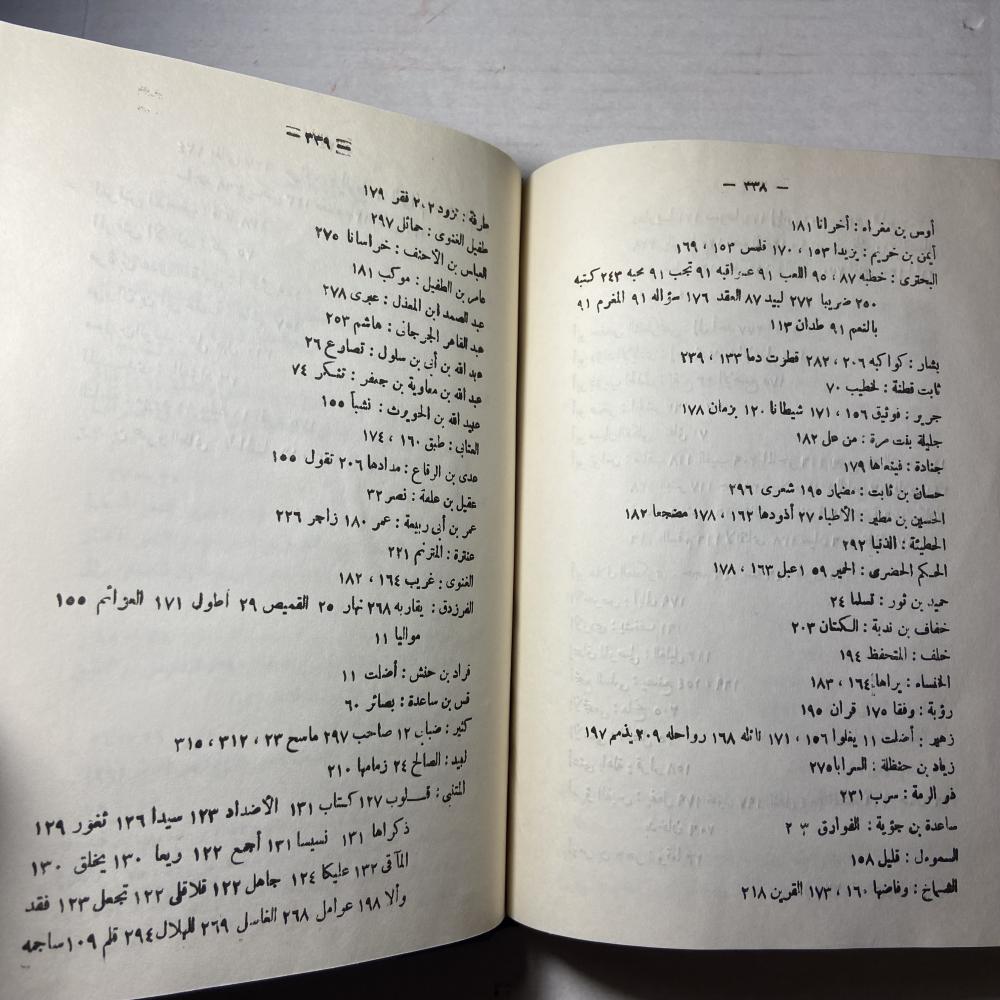 — ٣٣٨ —
أوس بن مغراء : أخرانا ١٨١
أيمن بن خريم : يزيدا ١٥٣ ، ١٧٠ قلمس ١٥٣ ، ١٦٩
البحترى : خطبه ٨٧ ، ٩٥ اللعب ٩١ عراقبه ٩١ تحب ٩١ محبه ٢٤٣ كتبه
٢٥٠ ضريبا ٢٧٢ لبيد ٨٧ العقد ١٧٦ سؤاله ٩١ المغرم ٩١
بالنعم ٩١ طدان ١١٣
بشار : كواكبه ٢٠٦ ، ٢٨٢ قطرت دما ١٣٣ ، ٢٣٩
ثابت قطنة : لخطيب ٧٠
جرير : فوثيق ١٥٦ ، ١٧١ شيطانا ١٢٠ بزمان ١٧٨
جليلة بنت مرة : من عل ١٨٢
جنادة : فينعاها ١٧٩
حسان بن ثابت : مضمار ١٩٥ شعرى ٢٩٦
الحسين بن مطير : الأطباء ٢٧ أذودها ١٦٢ ، ١٧٨ مضجعا ١٨٢
الحطيئة : الذنبا ٢٩٢
الحكم الحضرى : الحمير ٥٩ اعبل ١٦٣ ، ١٧٨
حميد بن ثور : تسلما ٢٤
خفاف بن ندبة : الكتان ٢٠٣
خلف : المتحفظ ١٩٤
الخنساء : يراها ١٦٤ ، ١٨٣
رؤبة : وفقا ١٧٥ قران ١٩٥
زهير : أضلت ١١ يغلوا ١٥٦ ، ١٧١ نائله ١٦٨ رواحله ٢٠٩ يذمم ١٩٧
زياد بن حنظلة : السرابا ٢٧٥
ذو الرمة : سرب ٢٣١
ساعدة بن جؤية : الفوارق ٢٠٣
السموءل : قليل ١٥٨
الشماخ : وفاضها ١٦٠ ، ١٧٣ القرين ٢١٨
— ٣٣٩ —
طرفة : تزود ٢٠٢ فقر ١٧٩
طفيل الغنوى : حمائل ٢٩٧
العباس بن الأحنف : خراسانا ٢٧٥
عامر بن الطفيل : موكب ١٨١
عبد الصمد ابن المعذل : عبرى ٢٧٨
عبد القاهر الجرجانى : هاشم ٢٥٣
عبد الله بن أبى سلول : تصارع ٢٦
عبد الله بن معاوية بن جعفر : تشكر ٧٤
عبيد الله بن الحويرث : نشبأ ١٥٥
العتابى : طبق ١٦٠ ، ١٧٤
عدى بن الرقاع : مدادها ٢٠٦ تقول ١٥٥
عقيل بن علفة : نصر ٣٢
عمر بن أبى ربيعة : عمر ١٨٠ زاجر ٢٢٦
عنترة : المترنم ٢٢١
الغنوى : غريب ١٦٤ ، ١٨٢
الفرزدق : يقاربه ٢٦٨ نهار ٢٥ القميص ٢٩ أطول ١٧١ العزائم ١٥٥
مواليا ١١
قراد بن حنش : أضلت ١١
قس بن ساعدة : بصائر ٦٠
كثير : ضباب ١٢ صاحب ٢٩٧ ماسح ٢٣ ، ٣١٢ ، ٣١٥
لبيد : الصالح ٢٤ زمامها ٢١٠
المتنبى : قلوب ١٢٧ كتاب ١٣١ الأضداد ١٢٣ سيدا ١٢٦ ثغور ١٢٩
ذكراها ١٣١ نسيسا ١٣١ أجمع ١٢٢ ربعا ١٣٠ يخلق ١٣٠
المآقى ١٣٢ عليكا ١٢٤ جاهل ١٢٢ قلاقلى ١٢٢ تجعل ١٢٣ فقد
وألا ١٩٨ عوامل ٢٦٨ الغاسل ٢٦٩ للهلال ٢٩٤ قلم ١٠٩ ساجمه